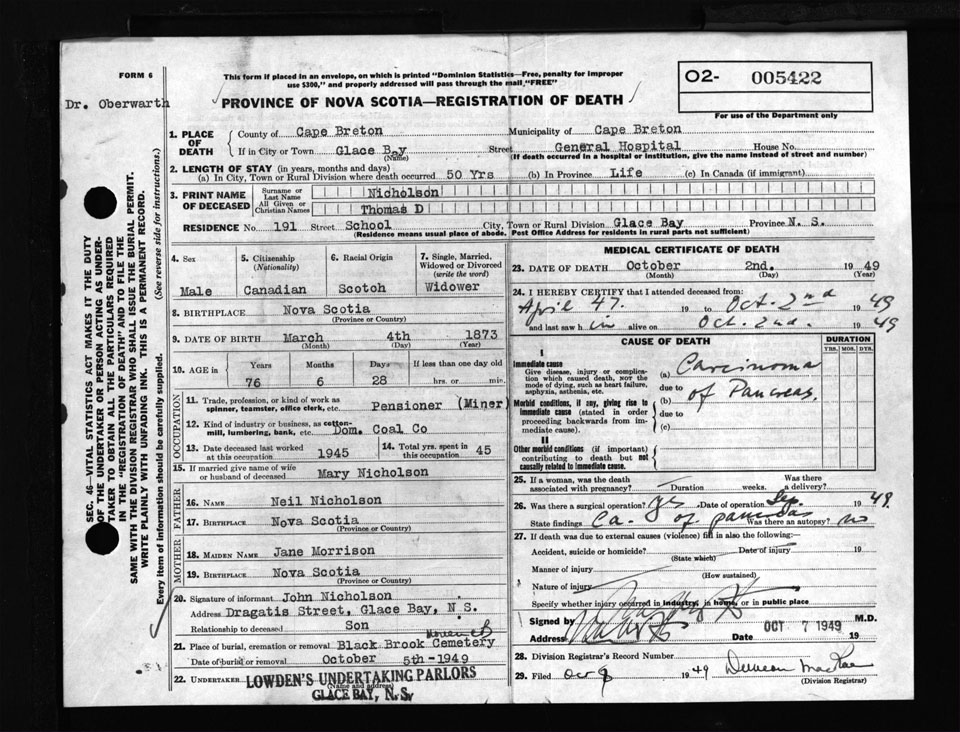 FORM 6
This form if placed in an envelope, on which is printed "Dominion Statistics—Free, penalty for improper
use $300," and properly addressed will pass through the mail "FREE"
O2- 005422
For use of the Department only
Dr. Oberwarth
PROVINCE OF NOVA SCOTIA—REGISTRATION OF DEATH
SEC. 46—VITAL STATISTICS ACT MAKES IT THE DUTY
OF THE UNDERTAKER OR PERSON ACTING AS UNDER-
TAKER TO OBTAIN ALL THE PARTICULARS REQUIRED
IN THE "REGISTRATION OF DEATH" AND TO FILE THE
SAME WITH THE DIVISION REGISTRAR WHO SHALL ISSUE THE BURIAL PERMIT.
WRITE PLAINLY WITH UNFADING INK. THIS IS A PERMANENT RECORD.
Every item of information should be carefully supplied. (See reverse side for instructions.)
1. PLACE OF DEATH County of Cape Breton Municipality of Cape Breton
If in City or Town Glace Bay Street General Hospital House No.
(Name) (If death occurred in a hospital or institution, give the name instead of street and number)
2. LENGTH OF STAY (in years, months and days)
(a) In City, Town or Rural Division where death occurred 50 Yrs (b) In Province Life (c) In Canada (if immigrant)
3. PRINT NAME OF DECEASED Surname or Last Name Nicholson
All Given or Christian Names Thomas D
RESIDENCE No. 191 Street School City, Town or Rural Division Glace Bay Province N. S.
(Residence means usual place of abode. Post Office Address for residents in rural parts not sufficient)
4. Sex 5. Citizenship (Nationality) 6. Racial Origin 7. Single, Married, Widowed or Divorced (write the word)
Male Canadian Scotch Widower
8. BIRTHPLACE Nova Scotia
(Province or Country)
9. DATE OF BIRTH March 4th 1873
(Month) (Day) (Year)
10. AGE in Years Months Days If less than one day old
76 6 28 hrs. or min.
OCCUPATION
11. Trade, profession, or kind of work as
spinner, teamster, office clerk, etc. Pensioner (Miner)
12. Kind of industry or business, as cotton-
mill, lumbering, bank, etc. Dom. Coal Co
13. Date deceased last worked at this occupation 1945 14. Total yrs. spent in this occupation 45
15. If married give name of wife
or husband of deceased Mary Nicholson
FATHER
16. NAME Neil Nicholson
17. BIRTHPLACE Nova Scotia
(Province or Country)
MOTHER
18. MAIDEN NAME Jane Morrison
19. BIRTHPLACE Nova Scotia
(Province or Country)
20. Signature of informant John Nicholson
Address Dragatis Street, Glace Bay, N. S.
Relationship to deceased Son
21. Place of burial, cremation or removal Black Brook Cemetery
Date of burial or removal October 5th-1949
22. UNDERTAKER LOWDEN'S UNDERTAKING PARLORS
(Name and address)
GLACE BAY, N. S.
MEDICAL CERTIFICATE OF DEATH
23. DATE OF DEATH October 2nd. 1949
(Month) (Day) (Year)
24. I HEREBY CERTIFY that I attended deceased from:
April 47. 19 to Oct. 2nd 1949
and last saw him alive on Oct. 2nd. 1949
CAUSE OF DEATH DURATION
YRS. MOS. DYS.
I
Immediate cause
Give disease, injury or complica-
tion which caused death, not the
mode of dying, such as heart failure,
asphyxia, asthenia, etc.
(a) Carcinoma
due to
Morbid conditions, if any, giving rise to
immediate cause (stated in order
proceeding backwards from im-
mediate cause).
(b) of Pancreas.
due to
(c)
II
Other morbid conditions (if important)
contributing to death but not
causally related to immediate cause.
25. If a woman, was the death
associated with pregnancy? Duration weeks. Was there a delivery?
26. Was there a surgical operation? yes Date of operation Sep. 1949.
State findings Ca. of pancreas Was there an autopsy? no
27. If death was due to external causes (violence) fill in also the following:—
Accident, suicide or homicide? Date of injury 19
(State which)
Manner of injury
(How sustained)
Nature of injury
Specify whether injury occurred in industry, in home, or in public place
Signed by M.D.
Address Date OCT 7 1949 19
28. Division Registrar's Record Number
29. Filed Oct 1949 Duncan MacRae
(Division Registrar)